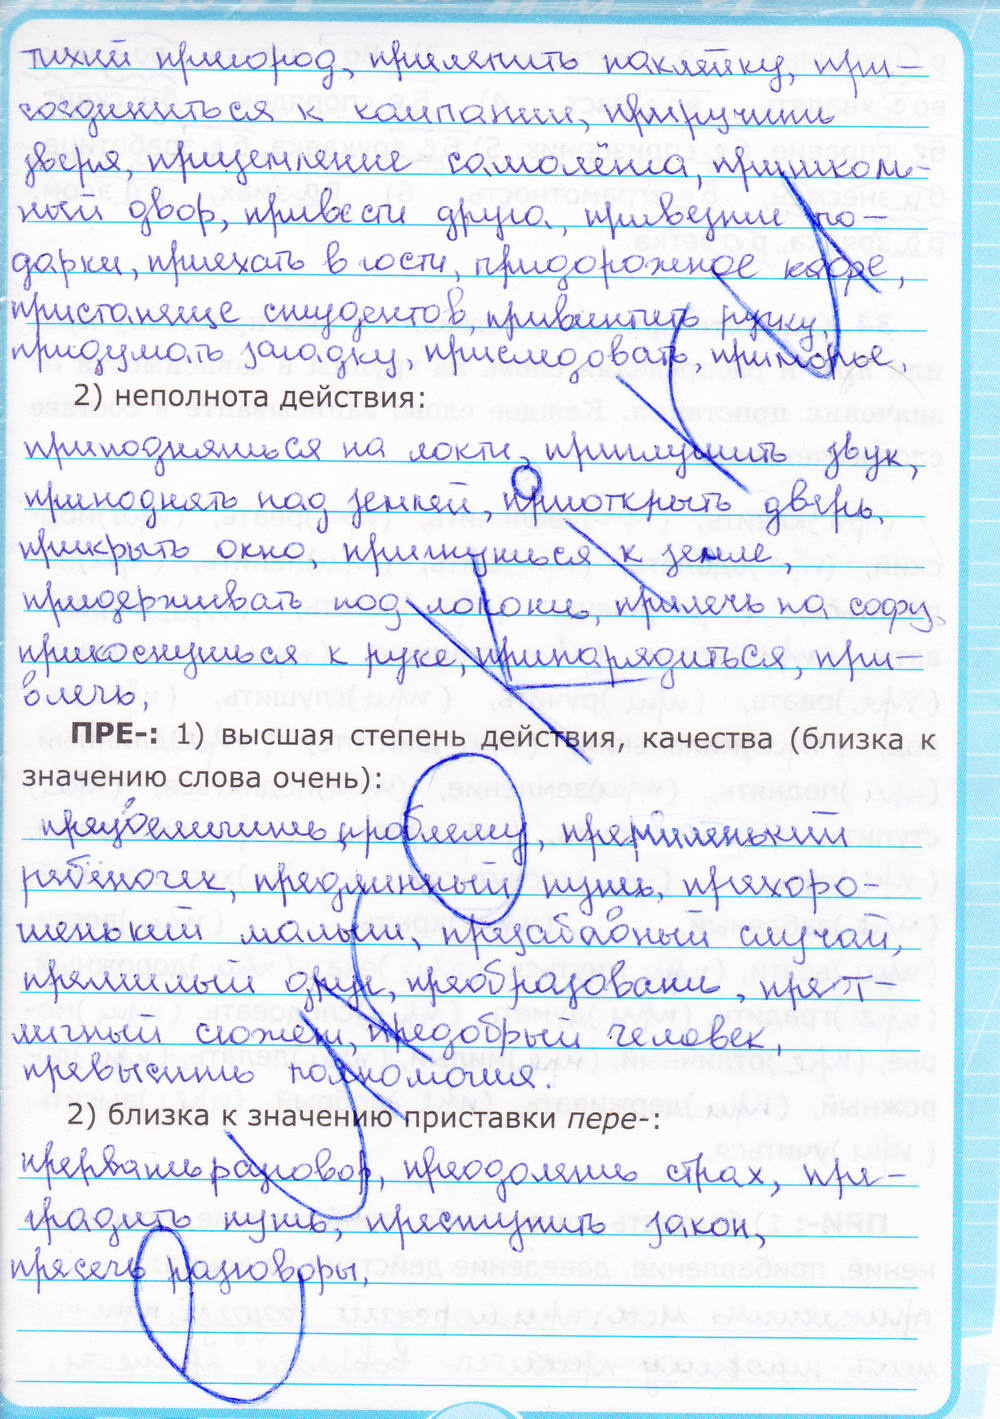 тихий пригород, прилепить наклейку, при
соединиться к компании, приручить
зверя, приземление самолёта, пришколь-
ный двор, привести друга, привезти по-
дарки, приехать в гости, придорожное кафе,
пристанище студентов, привинтить ручку,
придумать загадку, приследовать, приморье.
2) неполнота действия:
приподняться на локти, приглушить звук,
приподнять над землёй, приоткрыть дверь,
прикрыть окно, пригнуться к земле,
придерживать под локоть, прилечь на софу,
прикоснуться к руке, принарядиться, при-
влечь.
ПРЕ-: 1) высшая степень действия, качества (близка к
значению слова очень):
преувеличить проблему, премиленький
ребёночек, предлинный путь, прехоро-
шенький малыш, презабавный случай,
премилый друг, преобразовать, преот-
личный сюжет, предобрый человек,
превысить полномочия.
2) близка к значению приставки пере-:
прервать разговор, преодолеть страх, пре-
градить путь, преступить закон,
пресечь разговоры,